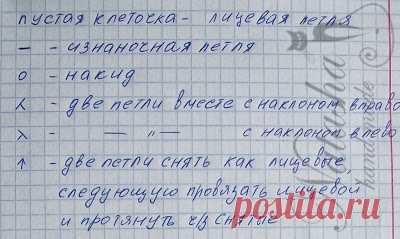 пустая клеточка - лицевая петля
— - изнаночная петля
о - накид
⋌ - две петли вместе с наклоном вправо
λ - — " — с наклоном влево
↑ - две петли снять как лицевые
следующую провязать лицевой
и протянуть ч/з снятые
Natusha
handmade
postila.ru